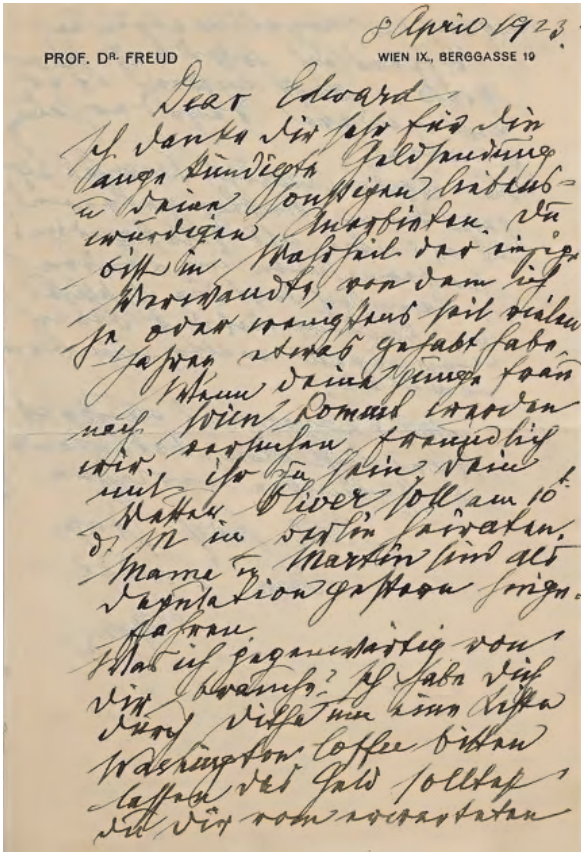 8 April 1923.
PROF. DR. FREUD
WIEN IX., BERGGASSE 19
Dear Edward
Ich danke Dir sehr für die
angekündigte Geldsendung
u deine sonstigen liebens-
würdigen Anerbieten. Du
bist in Wahrheit der einzige
Verwandte, von dem ich
je oder wenigstens seit vielen
Jahren etwas gehabt habe.
Wenn deine junge Frau
nach Wien kommt werden
wir versuchen freundlich
mit ihr zu sein. Dein
Vetter Oliver soll am 10t
d. M in Berlin heiraten.
Mama u Martin sind als
Deputation gestern hinge-
fahren.
Was ich gegenwärtig von
dir brauche? Ich habe Dich
durch um eine Kiste
Washington Coffee bitten
lassen das Geld solltest
du Dir vom erwarteten